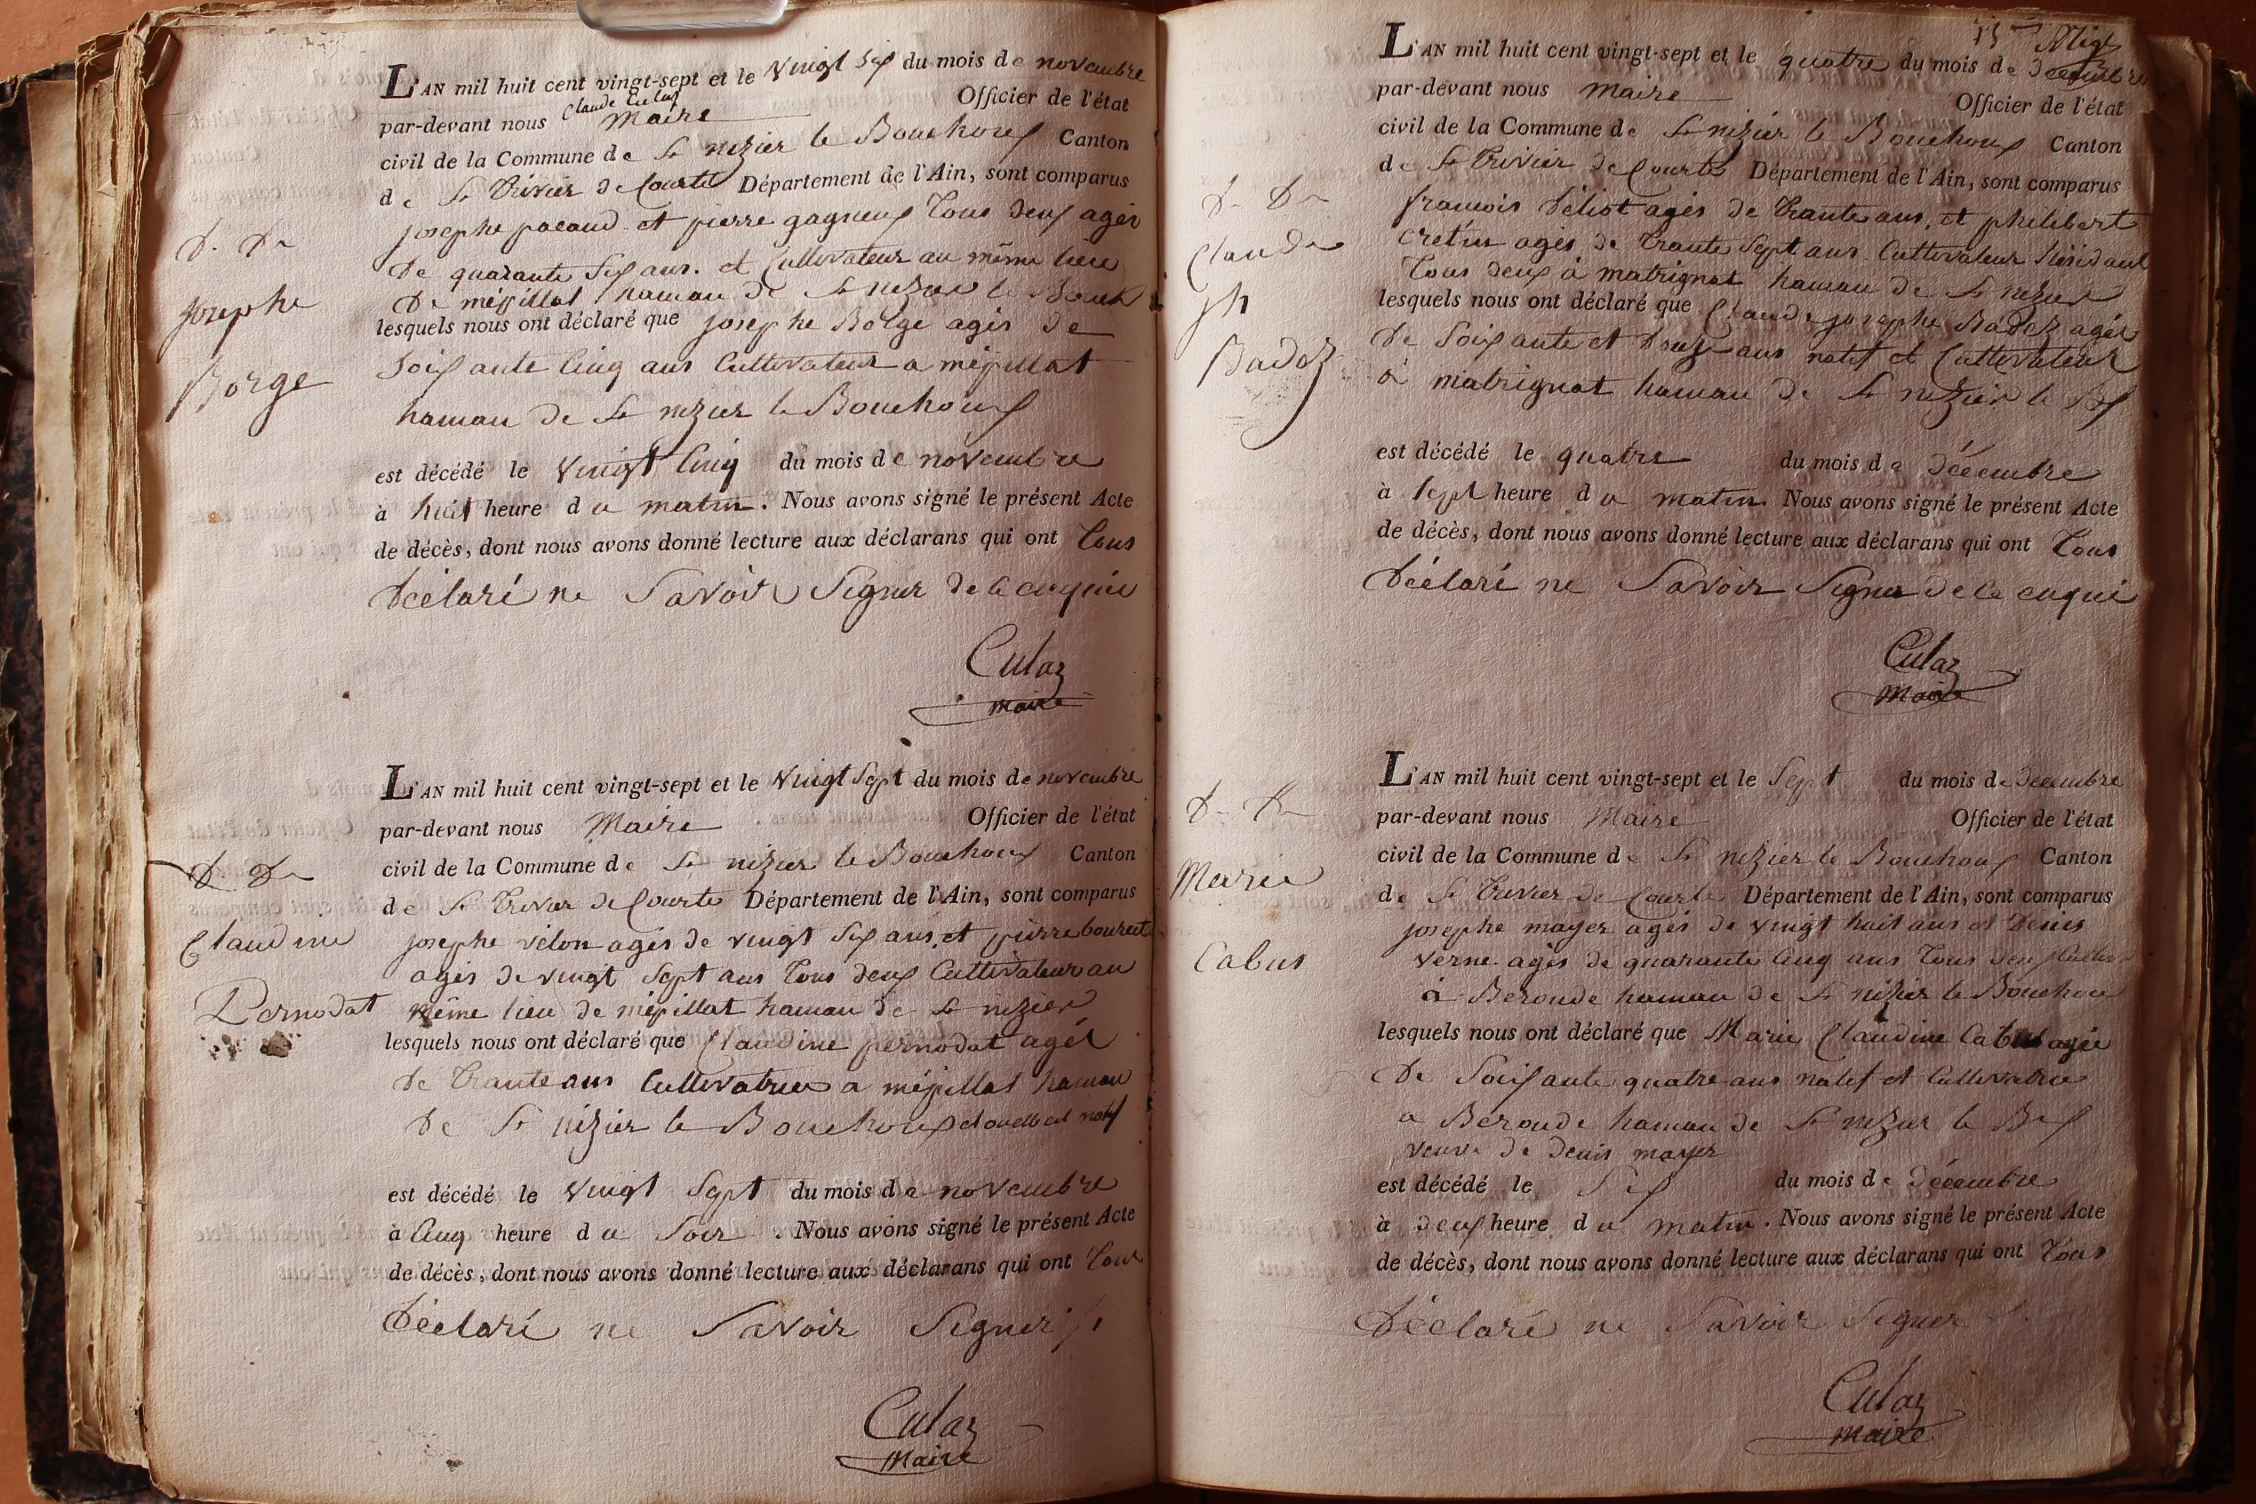 L'AN mil huit cent vingt-sept et le vingt six du mois de novembre
Claude Culaz
par-devant nous Maire Officier de l'état
civil de la Commune de St nizier le Bouchoux Canton
de St Trivier de Courte Département de l'Ain, sont comparus
josephe pacaud et pierre gagneux Tous deux agés
De quarante Six ans. et Cultivateur au même lieu
De mépillat hamau de St nizier le Bouch
lesquels nous ont déclaré que josephe Borge agés de
Soixante Cinq ans Cultivateur a mépillat
hamau de St nizier le Bouchoux
est décédé le vingt Cinq du mois de novembre
à huit heure du matin. Nous avons signé le présent Acte
de décès, dont nous avons donné lecture aux déclarans qui ont Tous
Déclaré ne Savoir Signer de ce enquie
Culaz
Maire
D. Dn
josephe
Borge
L'AN mil huit cent vingt-sept et le vingt Sept du mois de novembre
par-devant nous Maire Officier de l'état
civil de la Commune de St nizier le Bouchoux Canton
de St Trivier de Courte Département de l'Ain, sont comparus
josephe vélon agés de vingt Six ans, et pierre bourcet
agés de vingt Sept ans Tous deux Cultivateur au
même lieu de mépillat hamau de St nizier
lesquels nous ont déclaré que Claudine pernodat agés
de Trante ans Cultivatrice a mépillat hamau
De St nizier le Bouchoux natif
est décédé le vingt Sept du mois de novembre
à Cinq heure du Soir. Nous avons signé le présent Acte
de décès, dont nous avons donné lecture aux déclarans qui ont Tous
Déclaré ne Savoir Signer
Culaz
Maire
D. Dn
Claudine
Pernodat
15me
L'AN mil huit cent vingt-sept et le quatre du mois de Décembre
par-devant nous Maire Officier de l'état
civil de la Commune de St nizier le Bouchoux Canton
de St Trivier de Courtes Département de l'Ain, sont comparus
francois Péliot agés de Trante ans, et philibert
Cretin agés de Trante Sept ans Cultivateur Résidant
Tous deux à matrignat hamau de St nizier
lesquels nous ont déclaré que Claude josephe Badoz agés
De Soixante et Douze ans natif et Cultivateur
à matrignat hamau de St nizier le Bx
est décédé le quatre du mois de Décembre
à Sept heure du matin Nous avons signé le présent Acte
de décès, dont nous avons donné lecture aux déclarans qui ont Tous
Déclaré ne Savoir Signer de ce enquie
Culaz
Maire
D. Dn
Claude
jh
Badoz
L'AN mil huit cent vingt-sept et le Sept du mois de Décembre
par-devant nous Maire Officier de l'état
civil de la Commune de St nizier le Bouchoux Canton
de St Trivier de Courte Département de l'Ain, sont comparus
josephe mayer agés de vingt huit ans et Denis
verne agés de quarante Cinq ans Tous deux Cultiv
à Beronde hamau de St nizier le Bouchoux
lesquels nous ont déclaré que Marie Claudine Cabut agée
De Soixante quatre ans natif et Cultivatrice
a Beronde hamau de St nizier le Bx
veuve de Denis mayer
est décédé le Six du mois de Décembre
à deux heure du matin. Nous avons signé le présent Acte
de décès, dont nous avons donné lecture aux déclarans qui ont Tous
Déclaré ne Savoir Signer
Culaz
Maire
D. Dn
Marie
Cabus